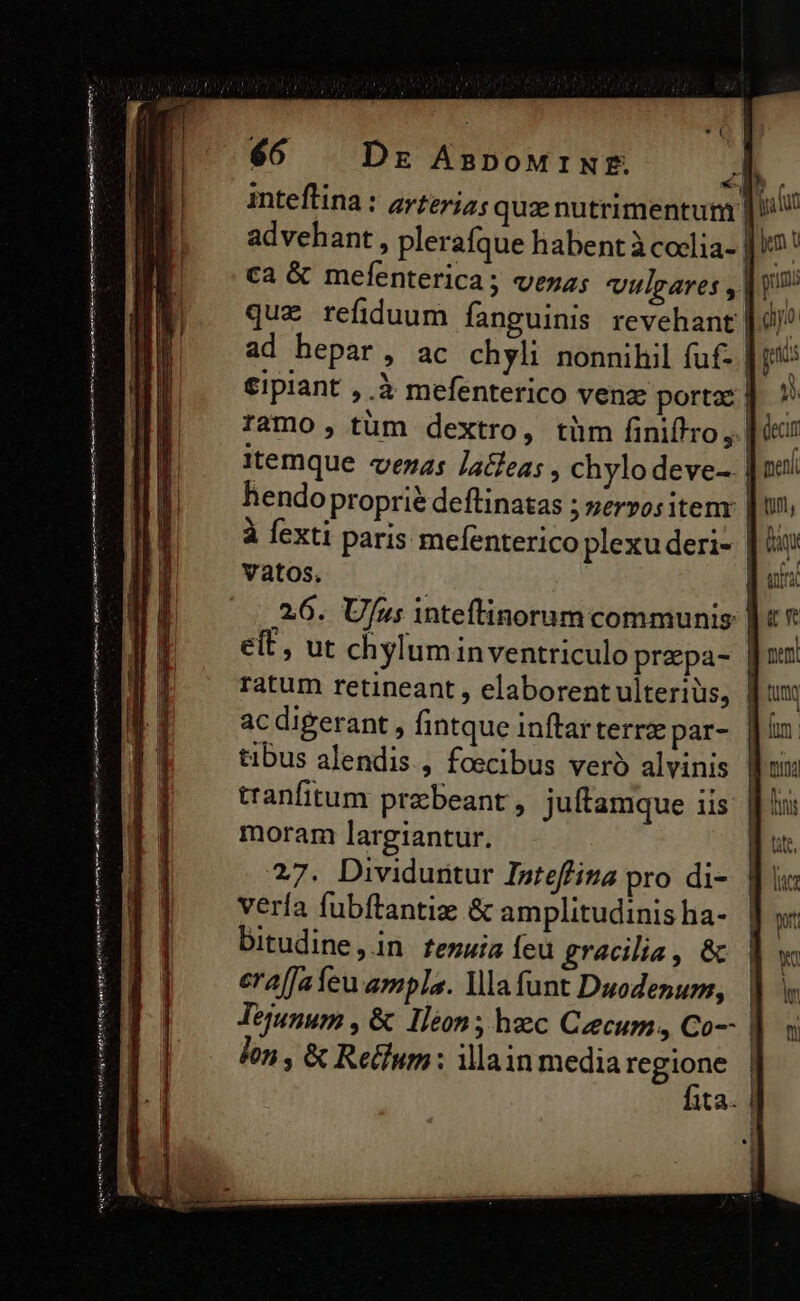 66 DE ABDOMINE.
inteſtina: arterias quæ nutrimentum
advehant, pleraſque habent à cœlia-
ca & meſenterica; venas vulgares,
quæ reſiduum ſanguinis revehant
ad hepar, ac chyli nonnihil ſuſ-
cipiant, à meſenterico venæ portæ
ramo, tùm dextro, tùm ſiniſtro,
itemque venas lacteas, chylo deve-
hendo propriè deſtinatas; nervos item
à ſexti paris meſenterico plexu deri-
vatos.
26. Uſus inteſtinorum communis
eſt, ut chylum in ventriculo præpa-
ratum retineant, elaborent ulteriùs,
ac digerant, ſintque inſtar terræ par-
tibus alendis, fœcibus verò alvinis
tranſitum præbeant, juſtamque iis
moram largiantur.
27. Dividuntur Inteſtina pro di-
verſa ſubſtantiæ & amplitudinis ha-
bitudine, in tenuia ſeu gracilia, &
craſſa ſeu ampla. Illa ſunt Duodenum,
Iejunum, & Ileon; hæc Cæcum, Co-
lon, & Rectum: illa in media regione
ſita.